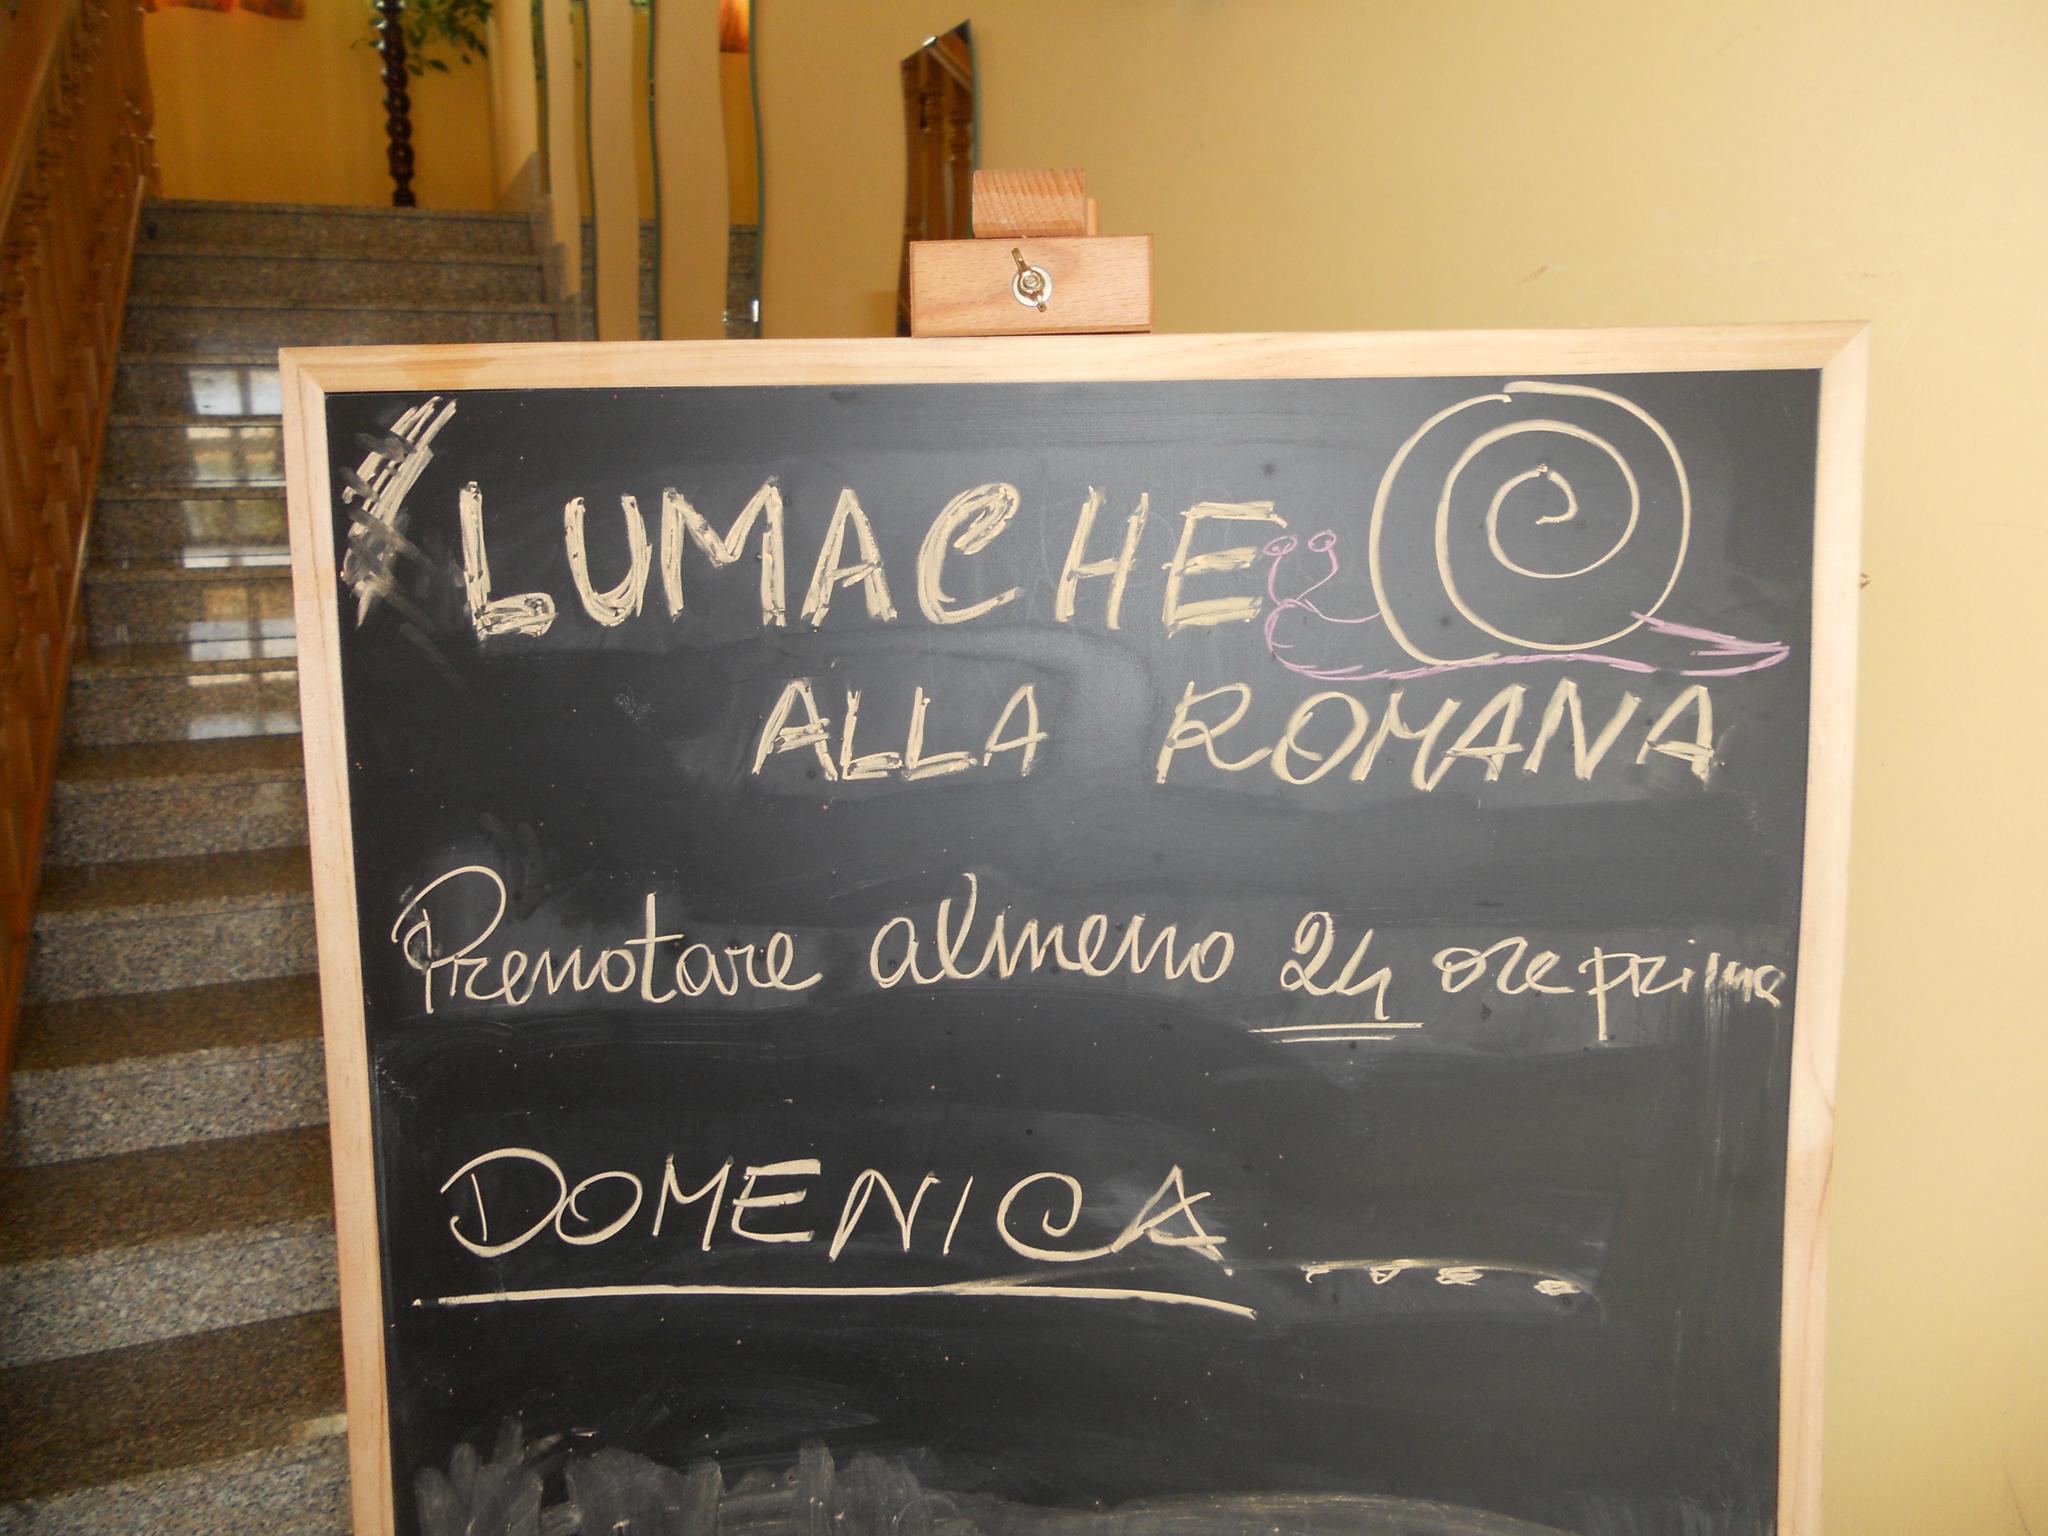 LUMACHE
ALLA ROMANA
Prenotare almeno 24 ore prima
DOMENICA ....